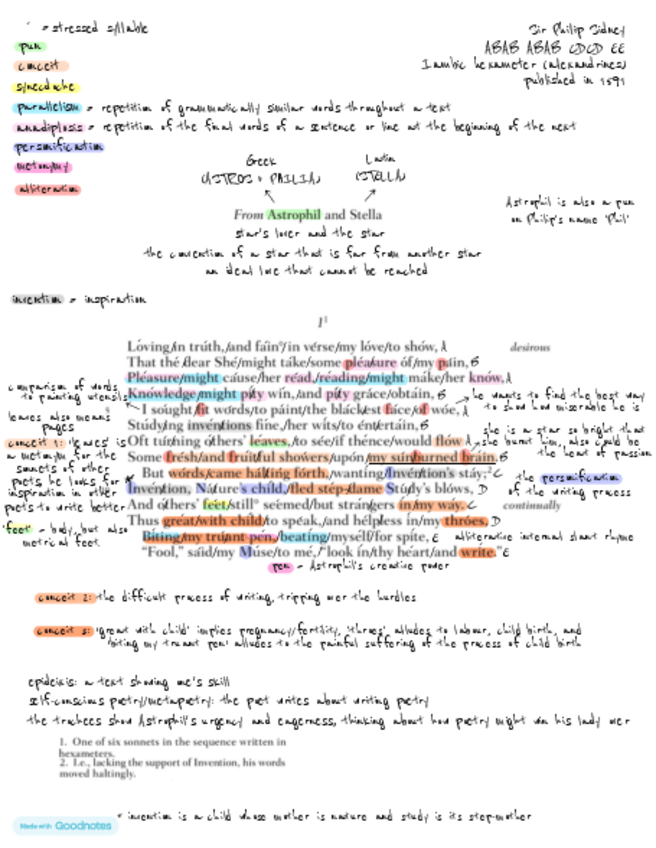 ' = stressed syllable
Sir Philip Sidney
pun
ABAB ABAB CDCD EE
conceit
Iambic hexameter (alexandrines)
synecdoche
published in 1591
parallelism = repetition of grammatically similar words throughout a text
anadiplosis = repetition of the final words of a sentence or line at the beginning of the next
personification
metonymy
alliteration
Greek
Latin
(ASTROS + PHILIA)
(STELLA)
From Astrophil and Stella
Astrophil is also a pun
on Philip's name 'Phil'
star's lover and the star
the convention of a star that is far from another star
an ideal love that cannot be reached
invention = inspiration
1¹
Loving/in truth,/and fain°/in verse/my love/to show, A
desirous
That the/dear She/might take/some pleasure of/my pain, B
Pleasure/might cause/her read,/reading/might make/her know, A
Knowledge/might pity win,/and pity grace/obtain, B
I sought/fit words/to paint/the blackest face/of woe, A
Studying inventions fine,/her wits/to entertain, B
Oft turning others' leaves,/to see/if thence/would flow A
Some fresh/and fruitful showers/upon/my sunburned brain. B
But words/came halting forth,/wanting/Invention's stay;² C
Invention, Nature's child,/fled step-dame Study's blows, D
And others' feet/still° seemed/but strangers in/my way. C
continually
Thus great/with child/to speak,/and helpless in/my throes, D
Biting/my truant pen,/beating/myself/for spite, E
"Fool," said/my Muse/to me,/"look in/thy heart/and write." E
comparison of words
to painting utensils
leaves also means
pages
conceit 1: 'leaves' is
a metonym for the
sonnets of other
poets, he looks for
inspiration in other
poets to write better
'feet' = body, but also
metrical feet
he wants to find the best way
to show how miserable he is
she is a star so bright that
she burnt him, also could be
the heat of passion
the personification
of the writing process
alliterative internal slant rhyme
pen = Astrophil's creative power
conceit 2: the difficult process of writing, tripping over the hurdles
conceit 3: 'great with child' implies pregnancy/fertility, 'throes' alludes to labour, child birth, and
'biting my truant pen' alludes to the painful suffering of the process of child birth
epideixis: a text showing one's skill
self-conscious poetry/metapoetry: the poet writes about writing poetry
the trochees show Astrophil's urgency and eagerness, thinking about how poetry might win his lady over
1. One of six sonnets in the sequence written in
hexameters.
2. I.e., lacking the support of Invention, his words
moved haltingly.
* invention is a child whose mother is nature and study is its step-mother
Made with Goodnotes